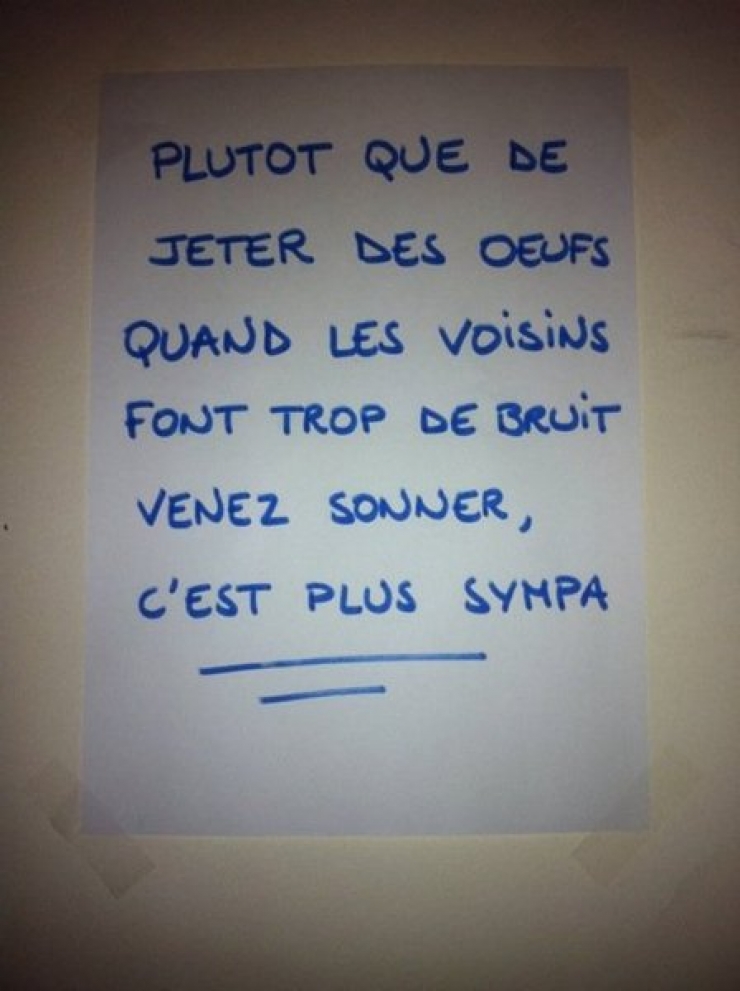 PLUTOT QUE DE
JETER DES OEUFS
QUAND LES VOISINS
FONT TROP DE BRUIT
VENEZ SONNER,
C'EST PLUS SYMPA